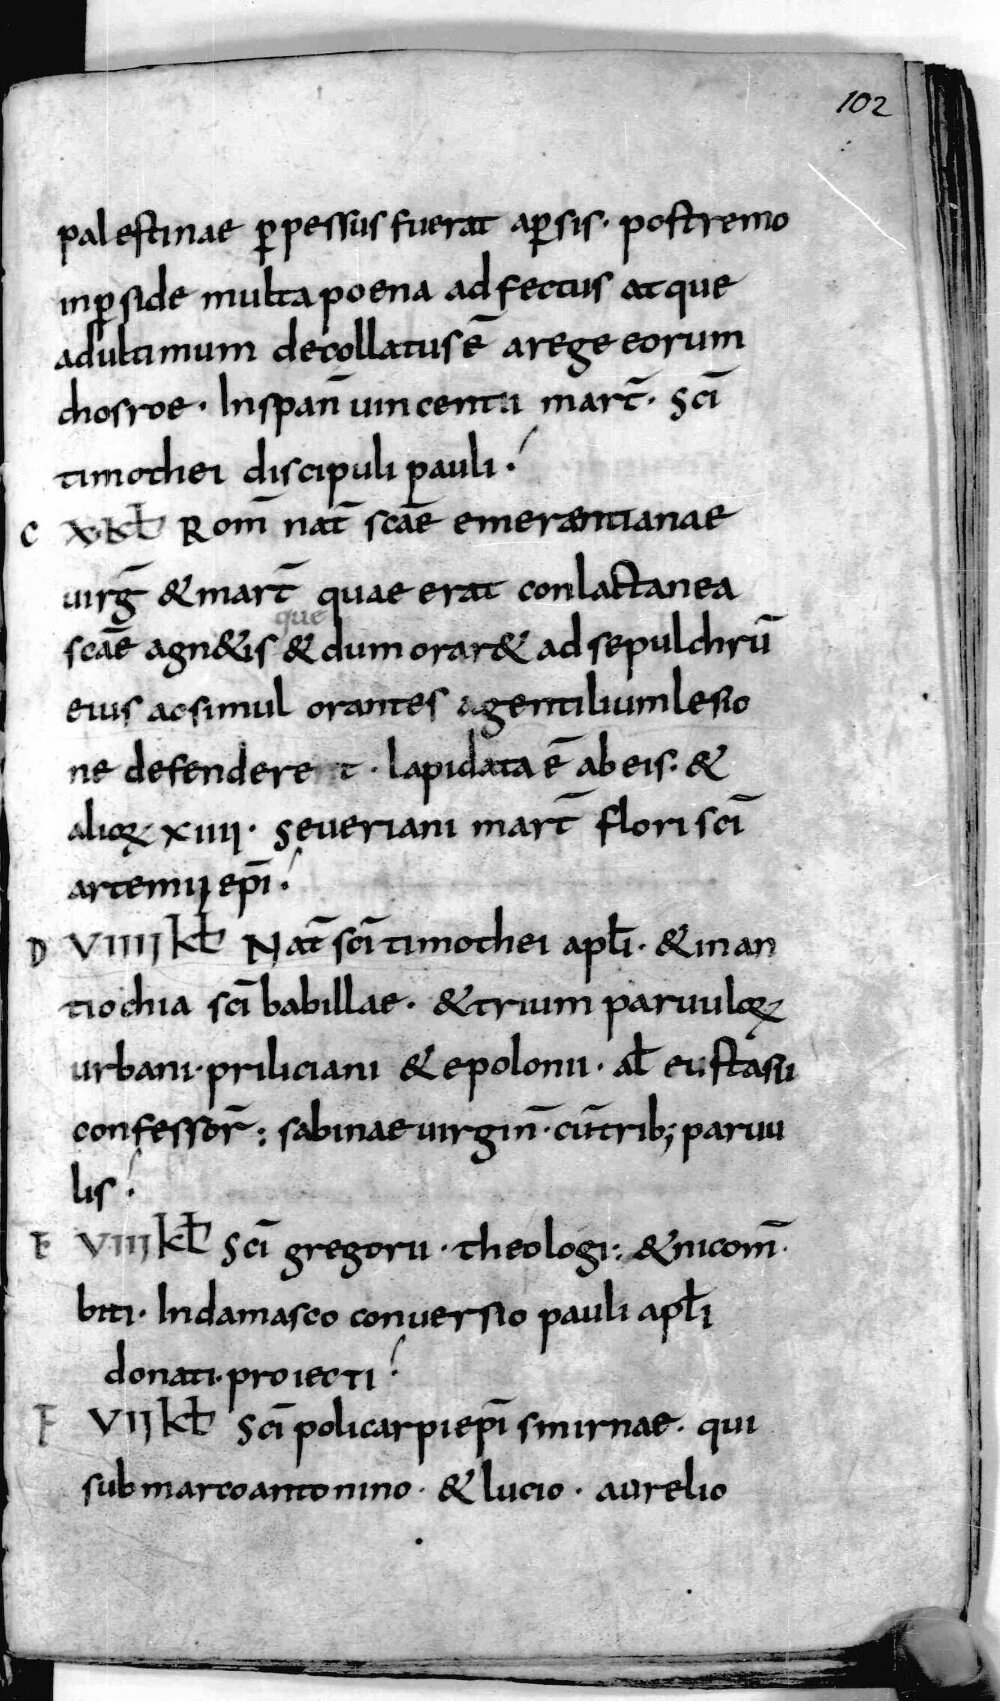 102
palestinae ꝑpessus fuerat aꝑsis· postremo
inꝑside multa poena adfectus atque
adultimum decollatus ē arege eorum
chosroe· Inspan̄ uincentii mart̄· Sc̄i
timothei discipuli pauli·
C X·kƚ Rom̄ nat̄ scāe emerentianae
uirḡ &mart̄ quae erat conlactanea
que
scāe agn&is & dum orar& ad sepulchrū
eius ac simul orantes agentilium lesio
ne defenderet· lapidata ē ab eis· &
alioꝝ xiiii· Seueriani mart̄ flori sc̄i
artemii ep̄i·
D VIIII kƚ Nat̄ sc̄i timothei apƚi· & in an
tiochia sc̄i babillae· & trium paruuloꝝ
urbani· priliciani & epolonii· aƚ eustasii
confessor̄: sabinae uirgin̄· cū trib; paruu
lis·
E VIII kƚ Sc̄i gregorii· theologi: & nicom̄·
biti· Indamasco conuersio pauli apƚi
donati· proiecti
F VII kƚ Sc̄i policarpi ep̄i smirnae· qui
sub marcoantonino· & lucio· aurelio